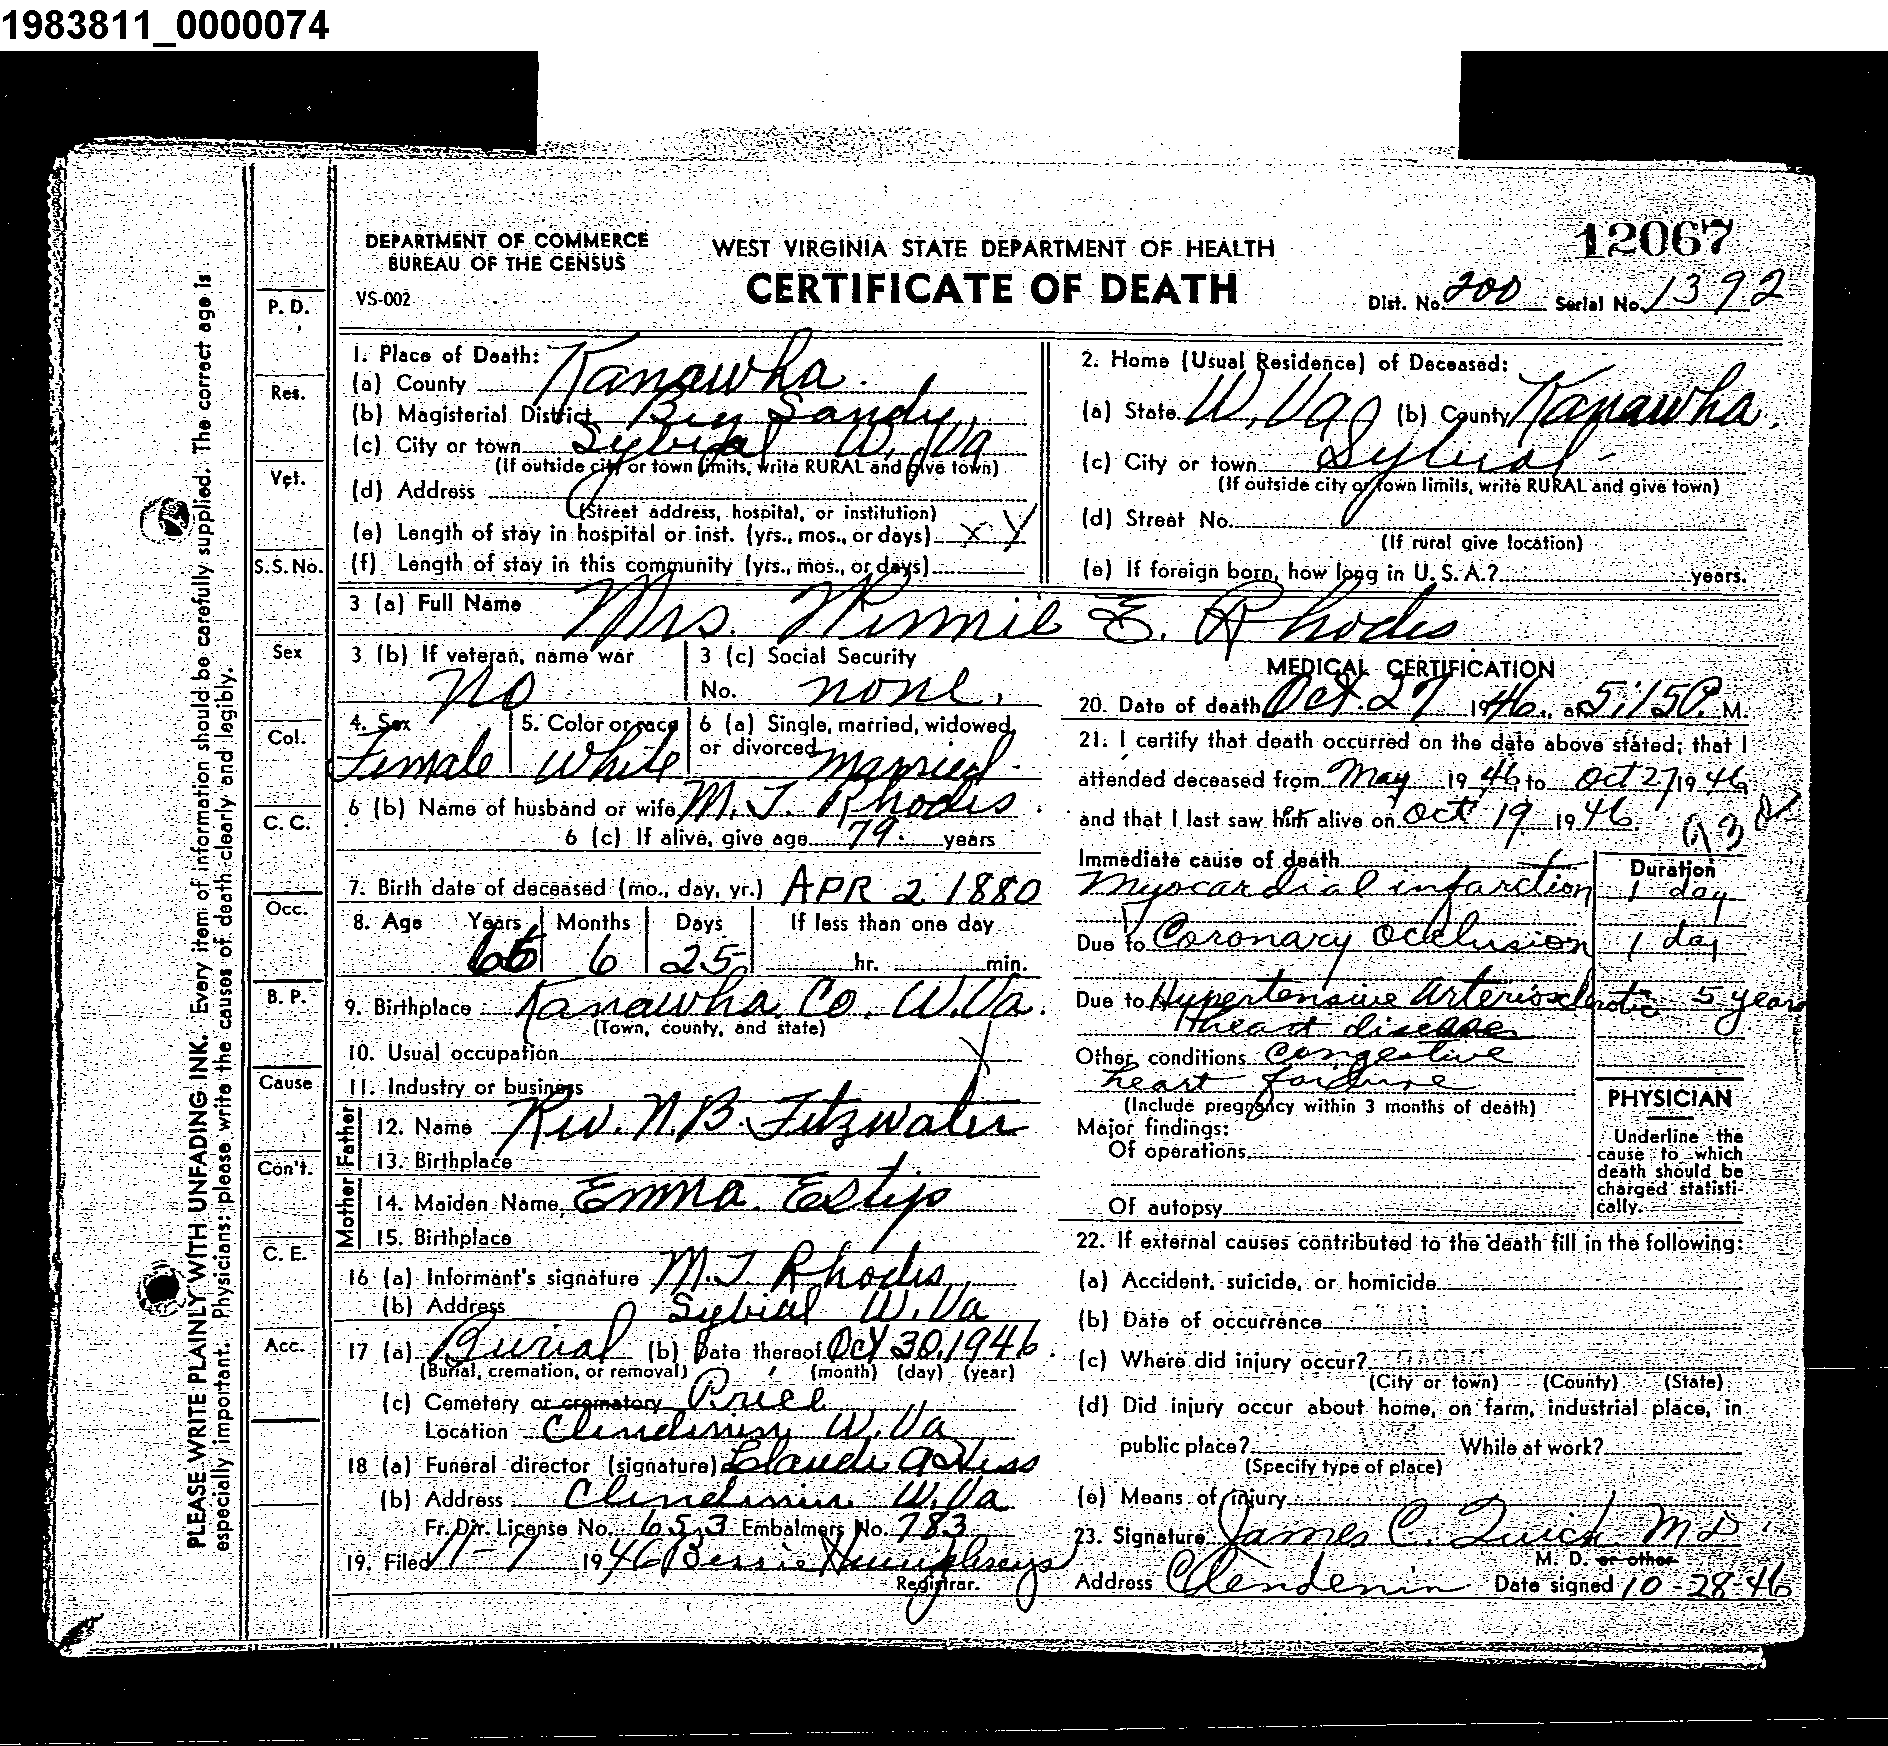 1983811_0000074
12067
DEPARTMENT OF COMMERCE
BUREAU OF THE CENSUS
WEST VIRGINIA STATE DEPARTMENT OF HEALTH
VS-002
CERTIFICATE OF DEATH
Dist. No. 200 Serial No. 1392
1. Place of Death:
(a) County Kanawha
(b) Magisterial District Big Sandy
(c) City or town Sybial W. Va
(If outside city or town limits, write RURAL and give town)
(d) Address
(Street address, hospital, or institution)
(e) Length of stay in hospital or inst. (yrs., mos., or days) x y
(f) Length of stay in this community (yrs., mos., or days)
2. Home (Usual Residence) of Deceased:
(a) State W. Va (b) County Kanawha.
(c) City or town Sybial
(If outside city or town limits, write RURAL and give town)
(d) Street No.
(If rural give location)
(e) If foreign born, how long in U. S. A.? years.
3 (a) Full Name Mrs. Minnie E. Rhodes
3 (b) If veteran, name war No
3 (c) Social Security No. none.
4. Sex Female
5. Color or race White
6 (a) Single, married, widowed, or divorced Married
6 (b) Name of husband or wife M. T. Rhodes
6 (c) If alive, give age 79 years
7. Birth date of deceased (mo., day, yr.) APR 2 1880
8. Age Years Months Days If less than one day
66 6 25 hr. min.
9. Birthplace Kanawha Co. W. Va.
(Town, county, and state)
10. Usual occupation
11. Industry or business
Father
12. Name Rev. N. B. Fitzwater
13. Birthplace
Mother
14. Maiden Name Emma Estip
15. Birthplace
16 (a) Informant's signature M. T. Rhodes
(b) Address Sybial W. Va
17 (a) Burial (b) Date thereof Oct 30, 1946
(Burial, cremation, or removal) (month) (day) (year)
(c) Cemetery or crematory Price
Location Clendenin W. Va
18 (a) Funeral director (signature) Claude A Hess
(b) Address Clendenin W. Va
Fr. Dir. License No. 653 Embalmers No. 783
19. Filed 11-7 1946 Bessie Humphreys
Registrar.
MEDICAL CERTIFICATION
20. Date of death Oct. 27 1946, at 5:15 P. M.
21. I certify that death occurred on the date above stated; that I
attended deceased from May 1946 to Oct 27 1946
and that I last saw him alive on Oct 19 1946.
Immediate cause of death Duration
Myocardial infarction 1 day
Due to Coronary Occlusion 1 day
Due to Hypertensive Arteriosclerotic 5 years
Heart disease
Other conditions Congestive
heart failure
(Include pregnancy within 3 months of death)
Major findings:
Of operations
Of autopsy
PHYSICIAN
Underline the
cause to which
death should be
charged statisti-
cally.
22. If external causes contributed to the death fill in the following:
(a) Accident, suicide, or homicide
(b) Date of occurrence
(c) Where did injury occur?
(City or town) (County) (State)
(d) Did injury occur about home, on farm, industrial place, in
public place? While at work?
(Specify type of place)
(e) Means of injury
23. Signature James C. Quick M D
M. D. or other
Address Clendenin Date signed 10-28-46
P. D.
Res.
Vet.
S.S. No.
Sex
Col.
C. C.
Occ.
B. P.
Cause
Con't.
C. E.
Acc.
PLEASE WRITE PLAINLY WITH UNFADING INK. Every item of information should be carefully supplied. The correct age is
especially important. Physicians: please write the causes of death clearly and legibly.